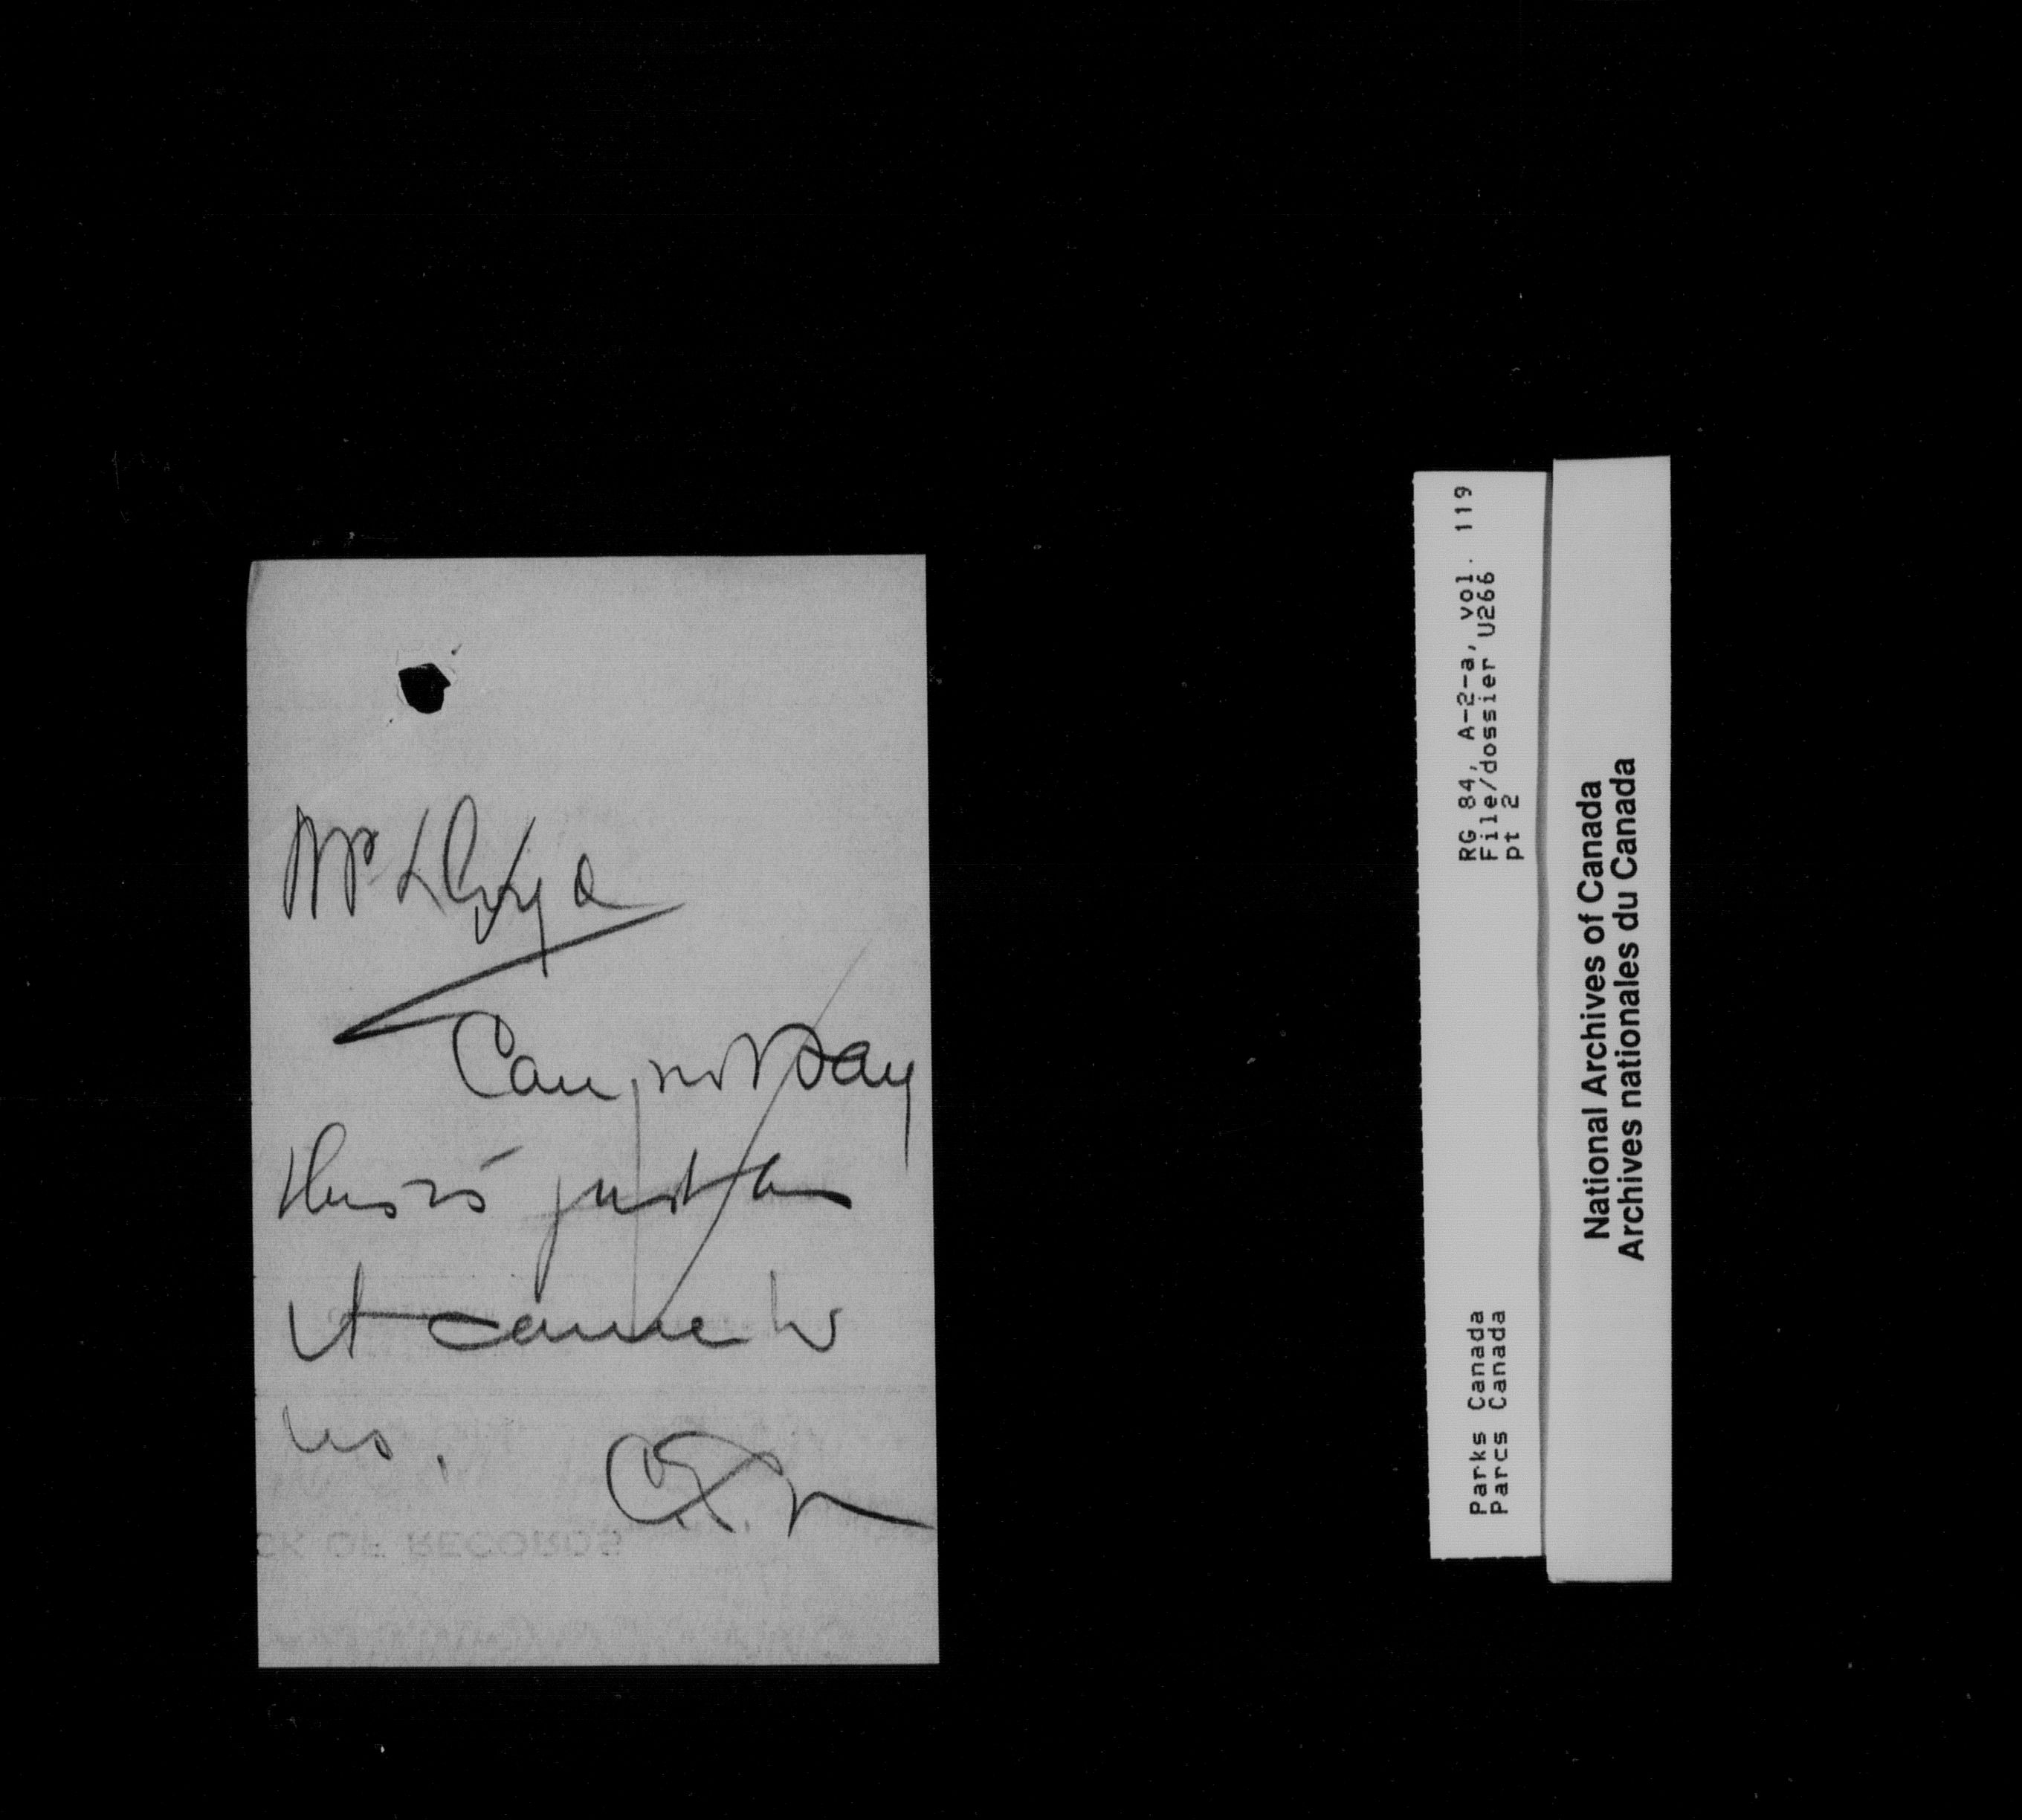 Mr Lloyd
Can not say
this is just as
it came to
us.
RG 84, A-2-a, vol. 119
File/dossier U266
pt 2
Parks Canada
Parcs Canada
National Archives of Canada
Archives nationales du Canada
OF RECORDS